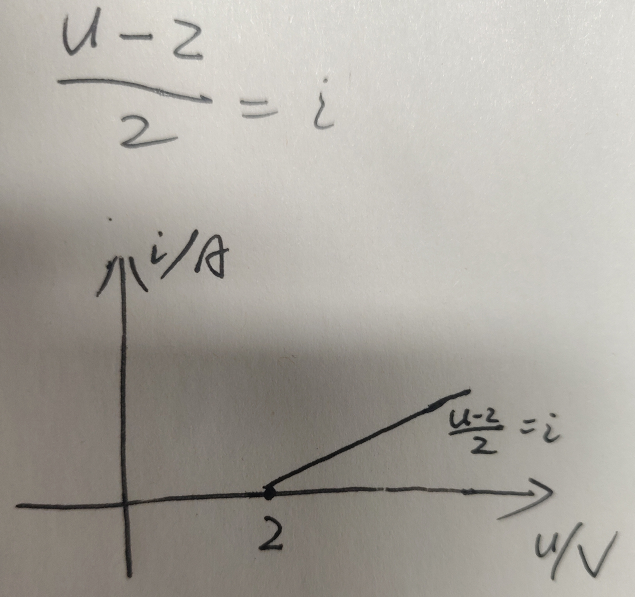 u-2
2
= i
i/A
u-2
2
=i
2
u/V